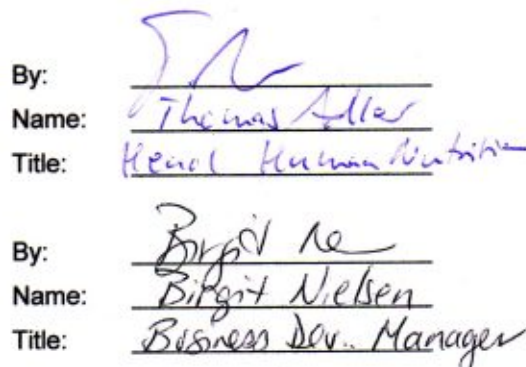 By:
Name: Thomas Adler
Title: Head Human Nutrition
By: Birgit
Name: Birgit Nielsen
Title: Business Dev.. Manager